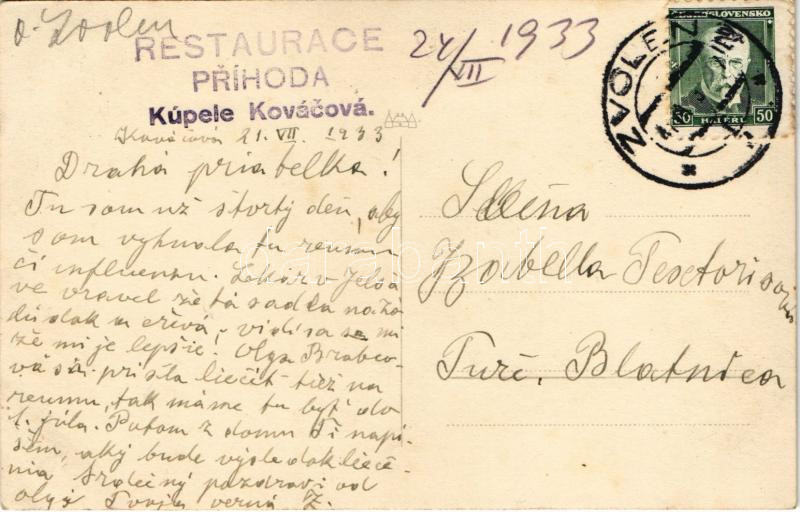 p. Zvolen
RESTAURACE
PŘÍHODA
Kúpele Kováčová.
24/VII 1933
ČESKOSLOVENSKO
50 HALÉŘŮ 50
ZVOLEN
Kováčová 21. VII. 1933
Drahá priatelka!
Tu som už štvrtý deň, aby
som vyhnala tu reumu
či influenzu. Lekár v Jelša
ve vravel že tá sadla na žá
dúdok a črévá; vidí sa mi
že mi je lepšie. Olga Brabco
vá prišla liečiť tiež na
reumu, tak máme tu byť do
1. júla. Potom z domu Ti napí
šem, aký bude výsledok lieče
nia. Srdečný pozdrav od
Olgi Tvoja verná Ž.
Slečna
Izabella Textorisová
Turč. Blatnica